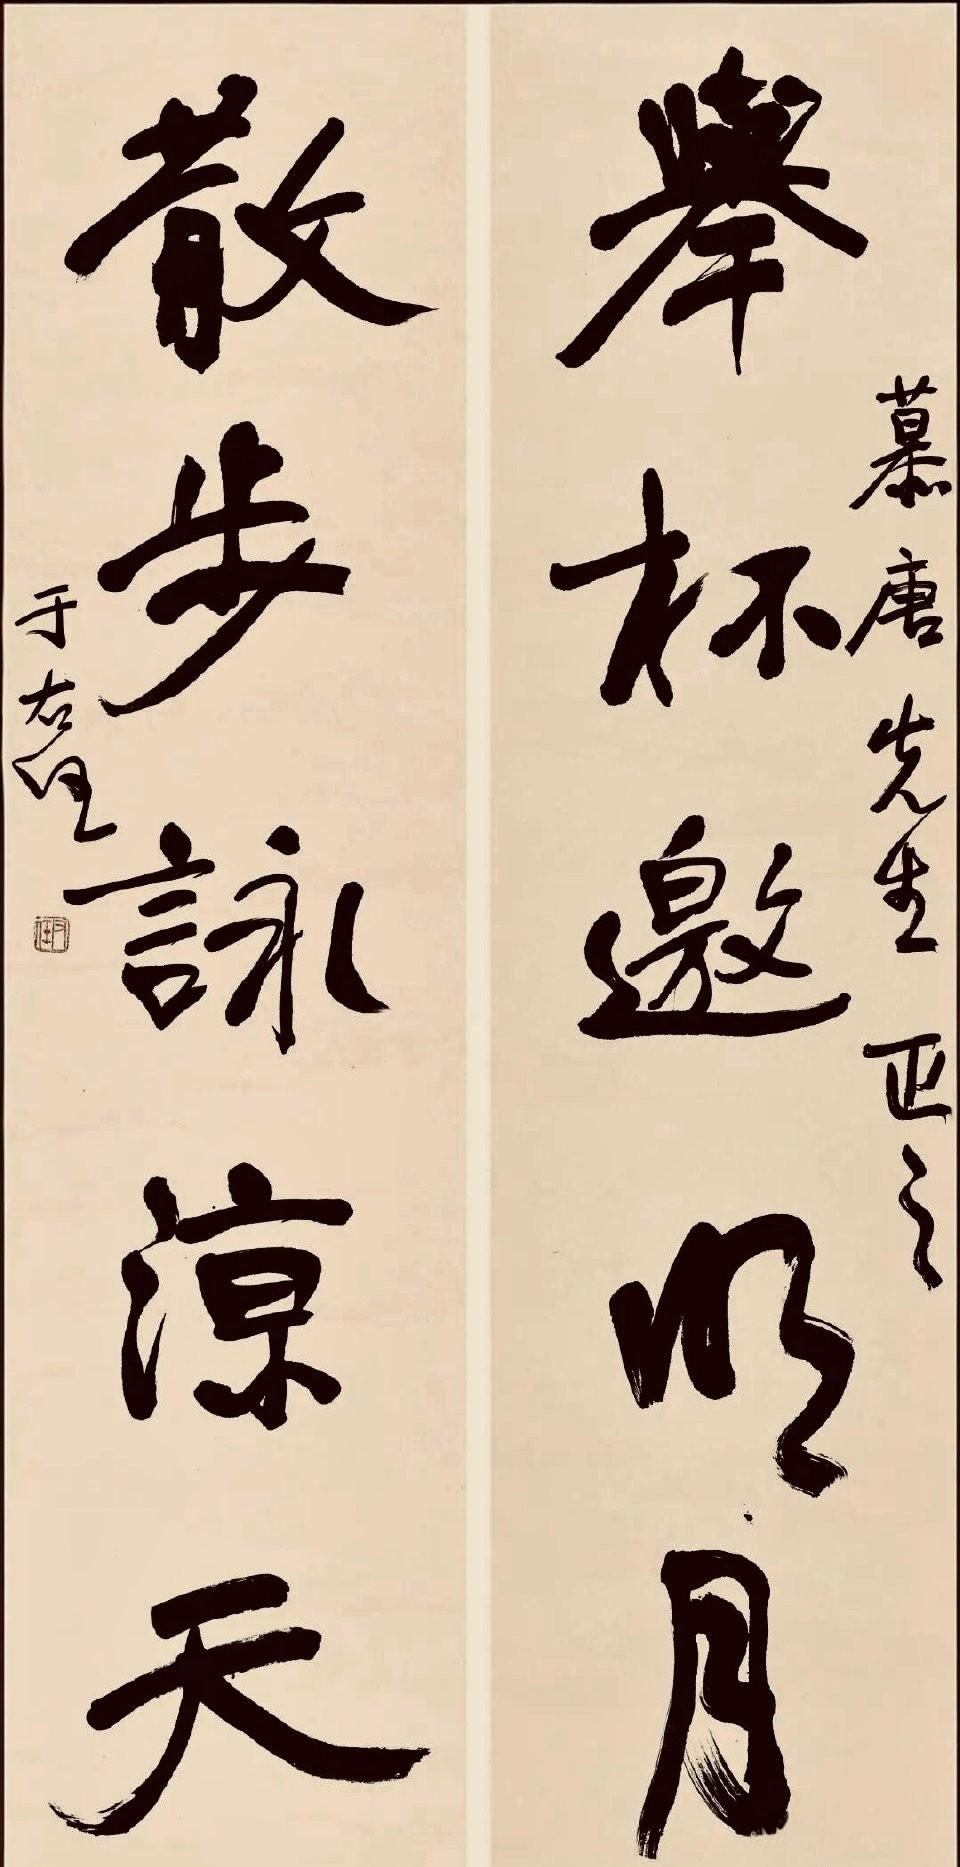 慕唐先生正之
舉杯邀明月
散步詠涼天
于右任